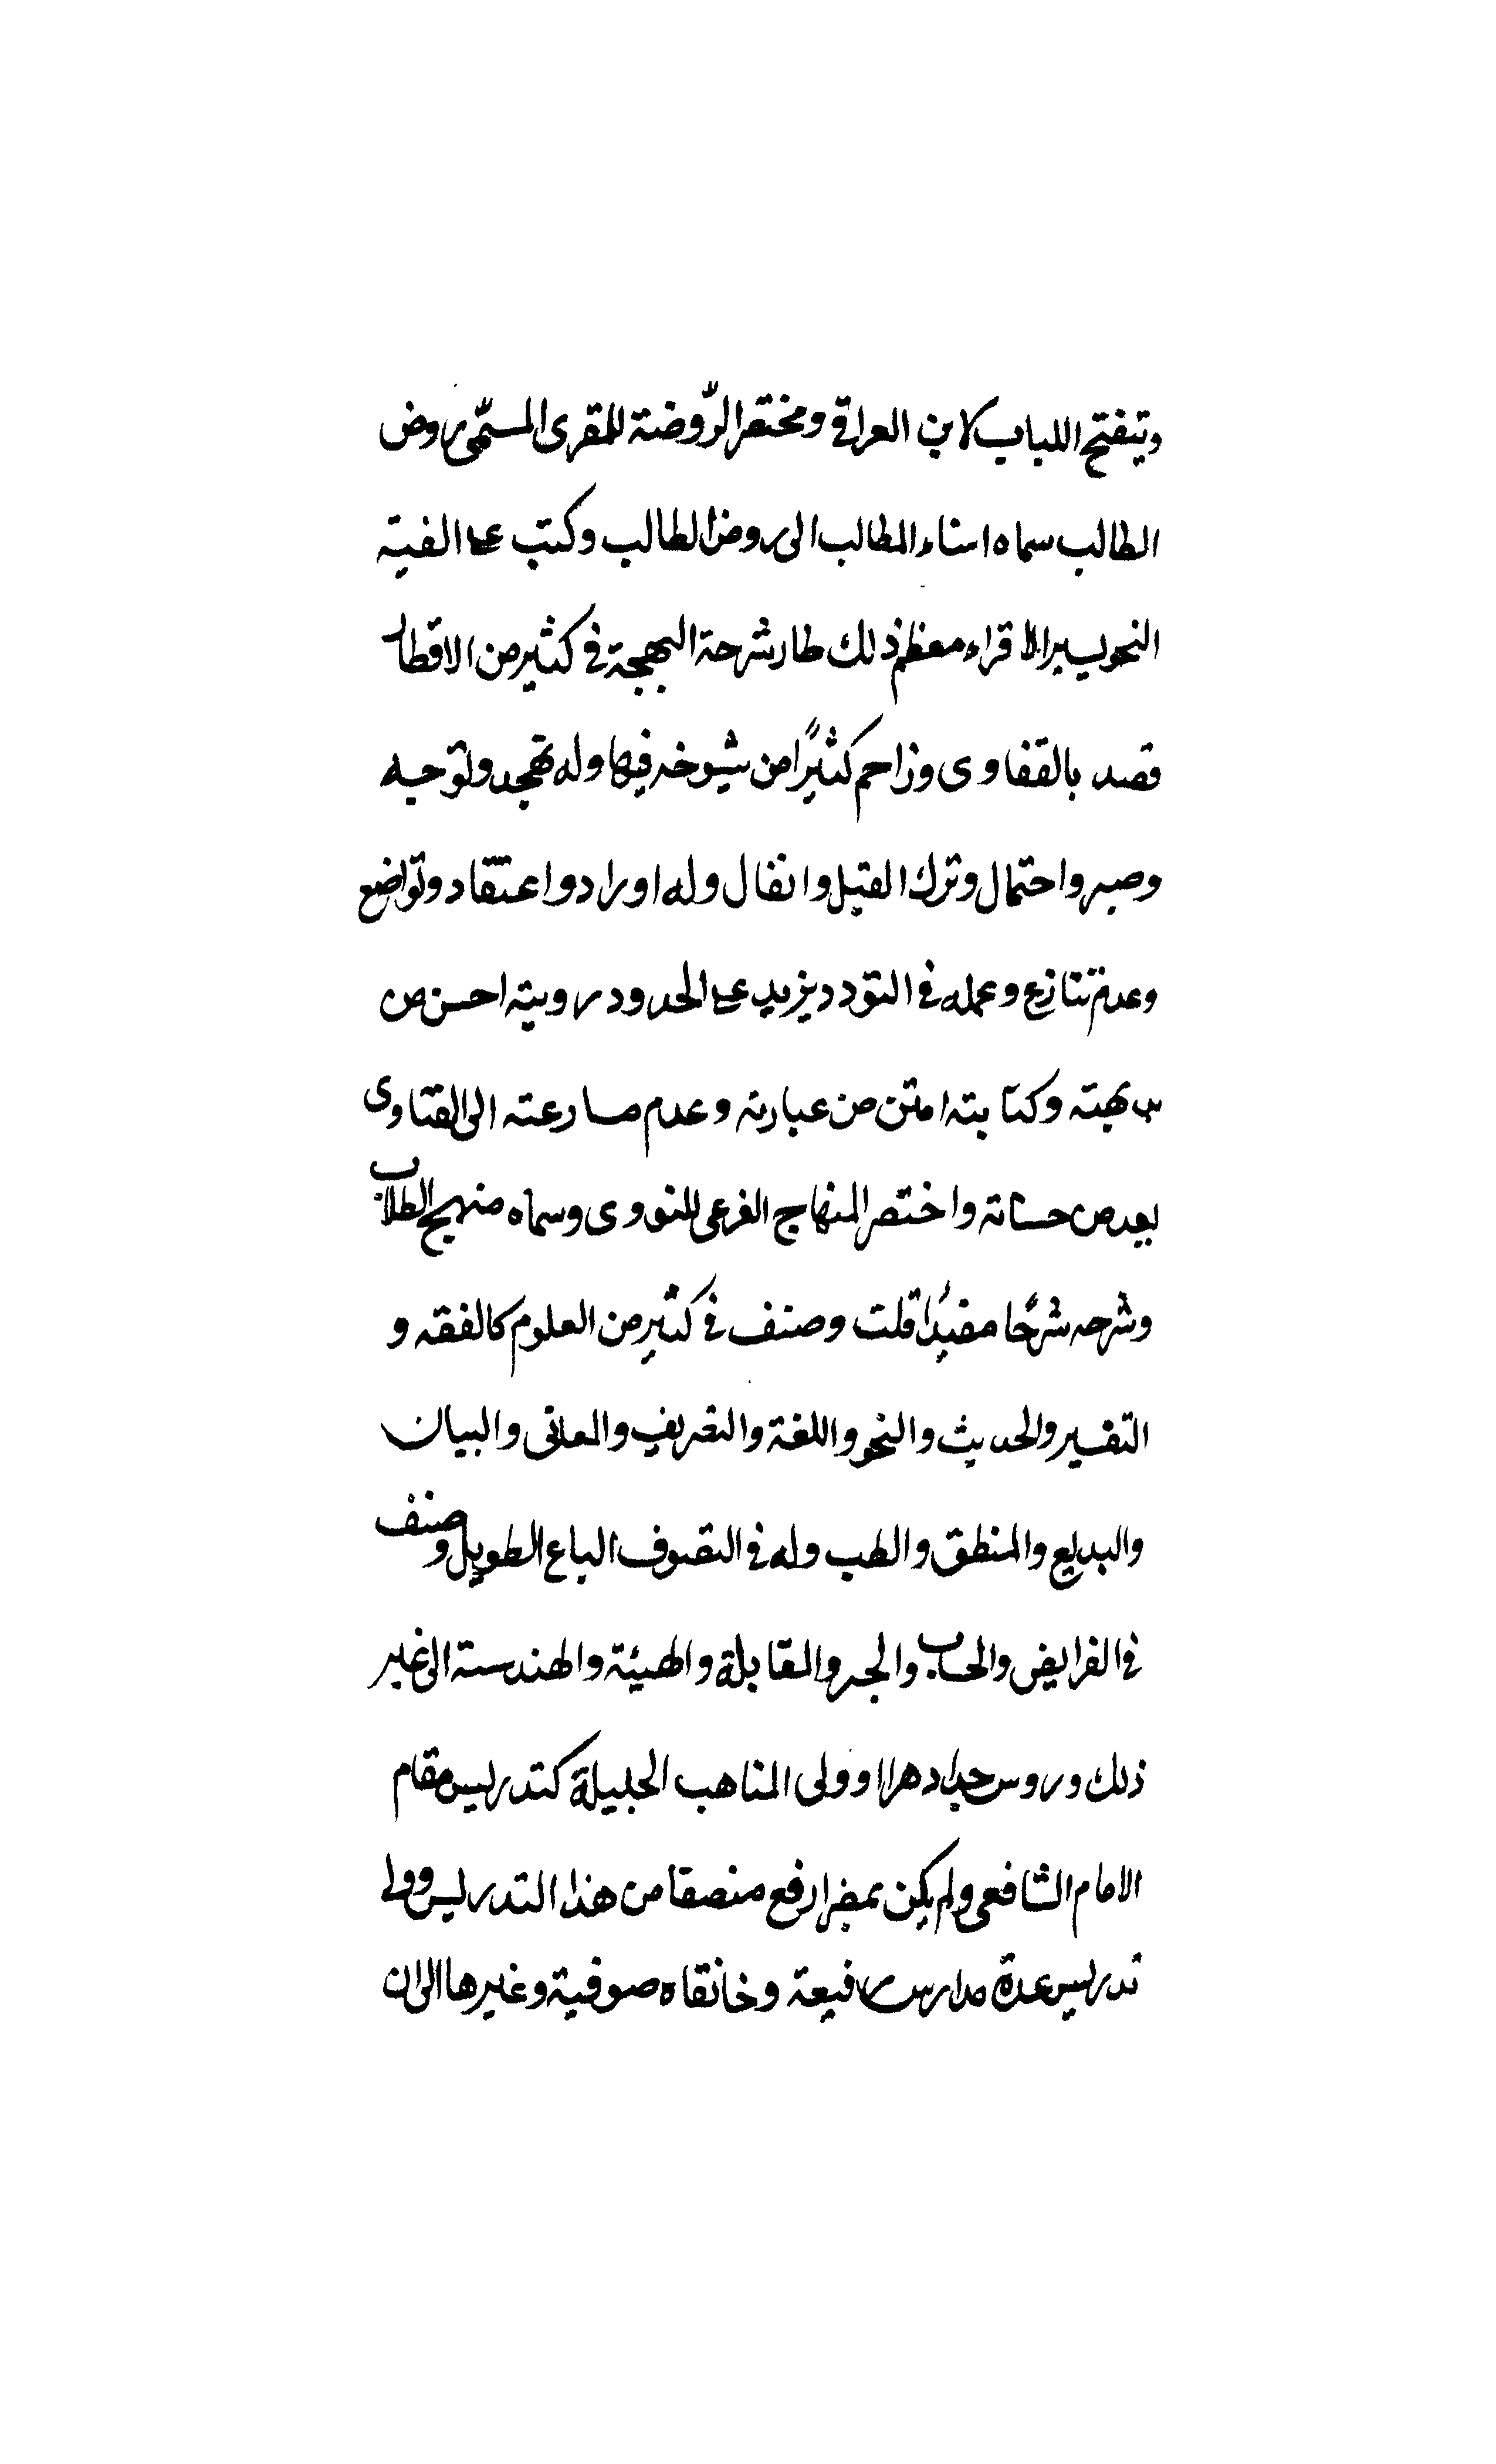 وتنفتح اللباب لابن العراقي ومختصر الرّوضة للمقرى المسمّى روض
الطالب سماه اسناء المطالب الى روض الطالب وكتب على الفية
النحو يسير الاقراء معظم ذلك طار شرحة البهجة في كثير من الاقطار
قصد بالفتاوى وزاحم كثيرًا من شيوخه فيها وله تهجد وتوجه
وصبر واحتمال وترك القيل وانفال وله اوراد واعتقاد وتواضع
وعدم تنازع وعمله في التودد يزيد على الحدود رويته احسن من
بديهته وكتابته امتن من عبارته وعدم مسارعته الى الفتاوى
يعد من حسناته واختصر المنهاج الفرعى للنووى وسماه منهج الطلاب
وشرحه شرحًا مفيدًا قلت وصنف في كثير من العلوم كالفقه و
التفسير والحديث والنحو واللغة والتصريف والمعانى والبيان
والبديع والمنطق والطب وله في التصوف الباع الطويل وصنف
في الفرايض والحساب والجبر والمقابلة والهيئة والهندسة الى غير
ذلك ودروس جدا دهرا وولى المناصب الجليلة كتدريس مقام
الامام الشافعى ولم يكن بمصر ارفع منصقا من هذا التدريس وولى
تدريس عدة مدارس رفيعة وخانقاه صوفية وغيرها الى ان